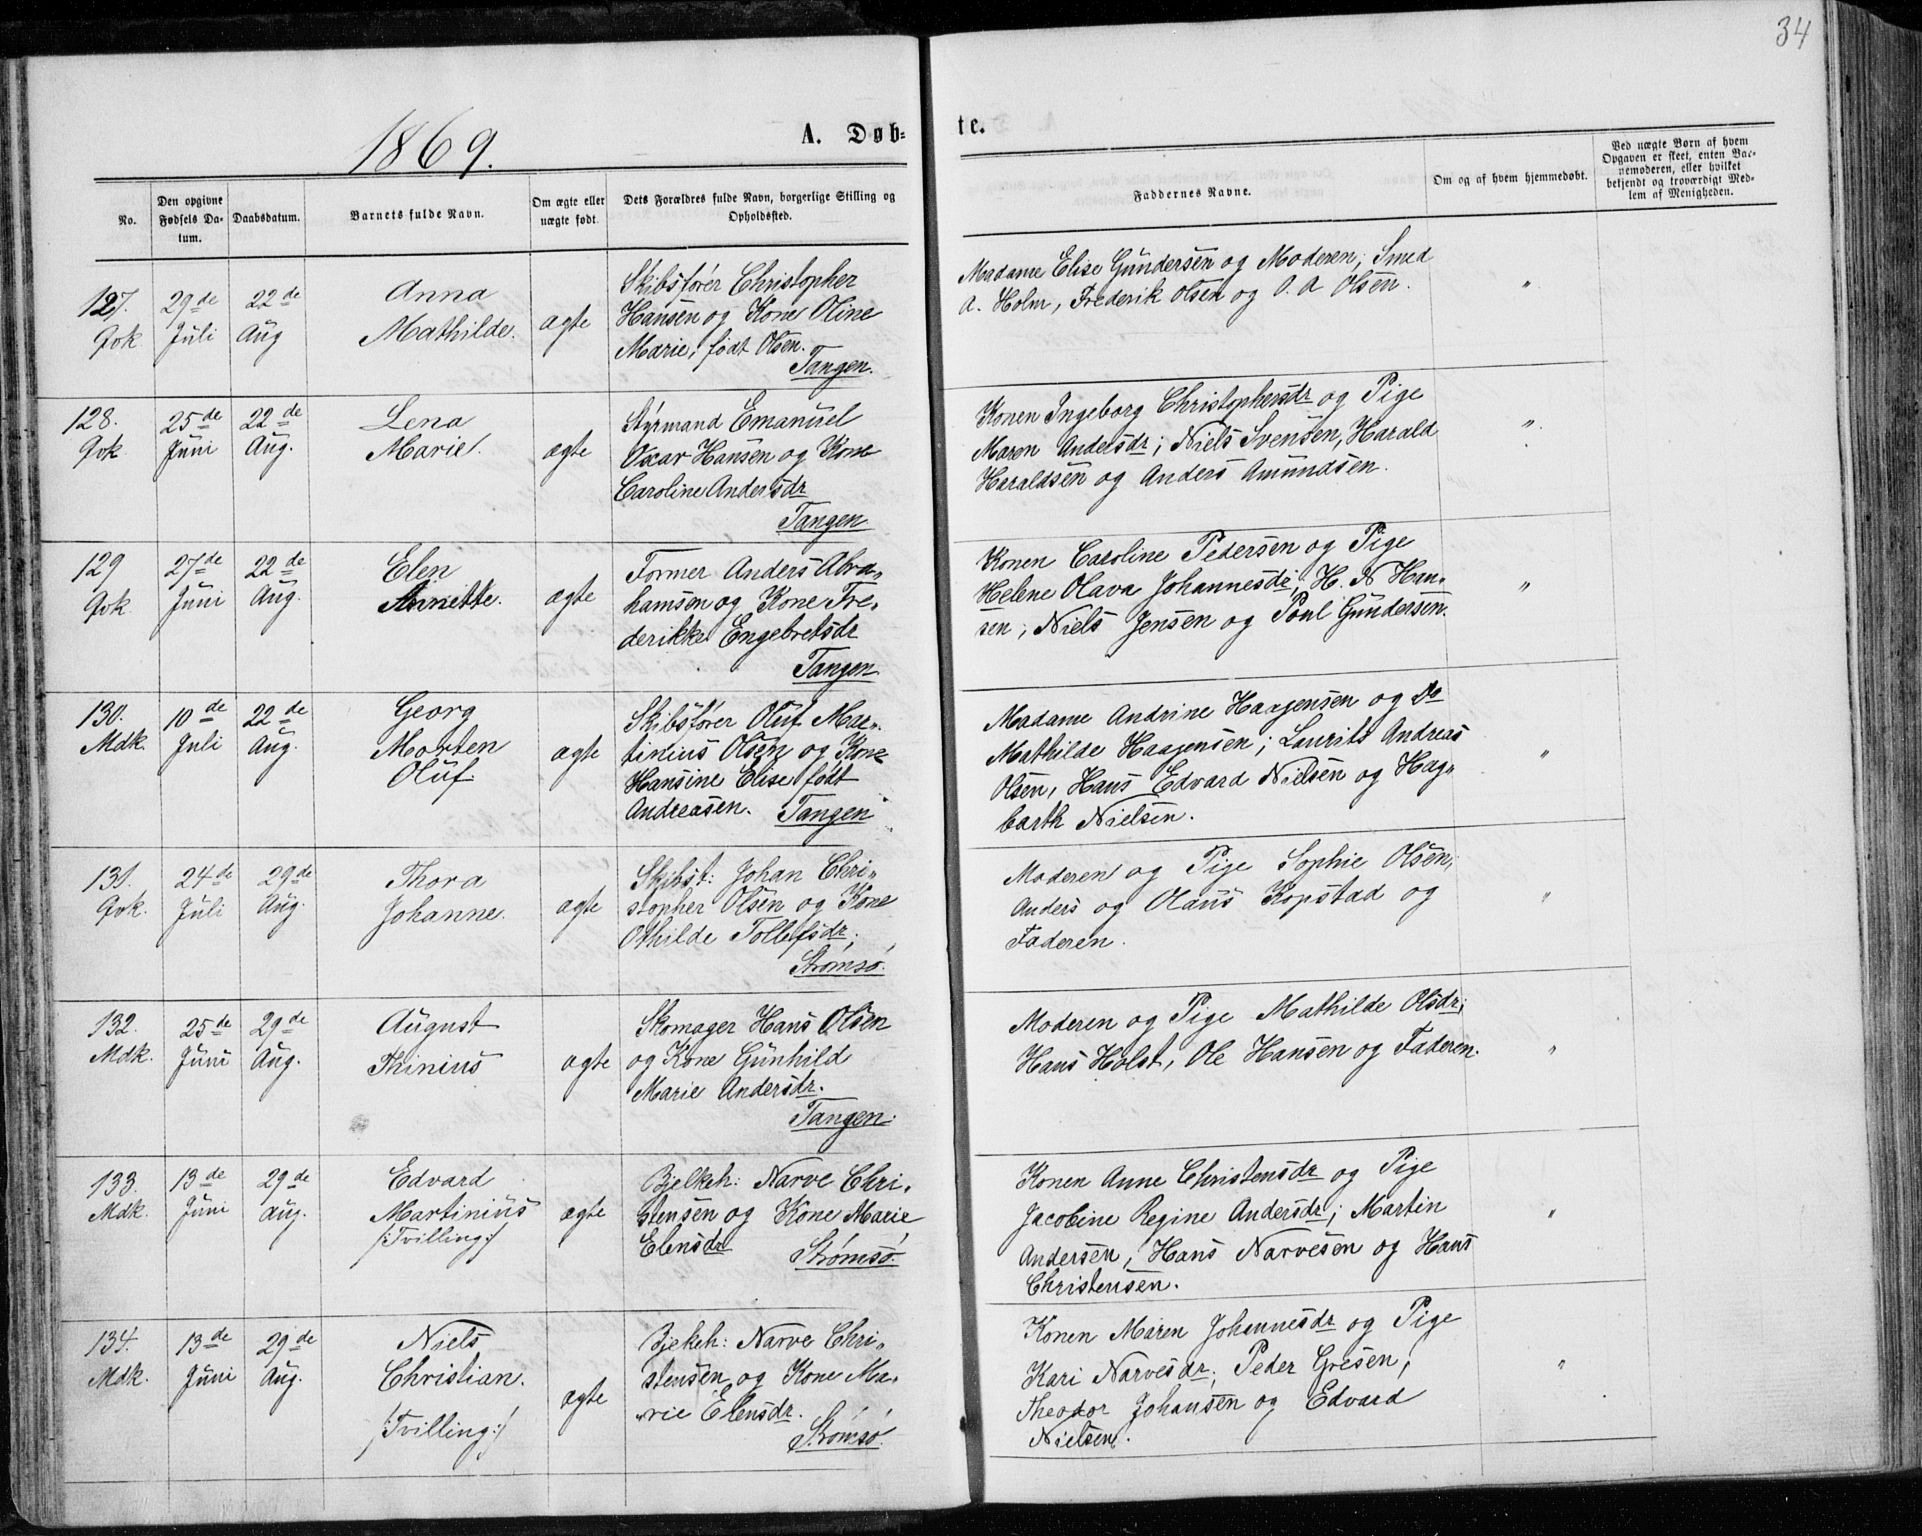 34
1869.
A. Døb-
te.
No.
Den opgivne Fødsels Da-
tum.
Daabsdatum.
Barnets fulde Navn.
Om ægte eller
uægte født.
Dets Forældres fulde Navn, borgerlige Stilling og
Opholdssted.
Faddernes Navne.
Om og af hvem hjemmedøbt.
Ved uægte Børn af hvem
Opgaven er skeet, enten Bar-
nemoderen, eller hvilket
bekjendt og troværdigt Med-
lem af Menigheden.
127.
Qvk
29de
Juli
22de
Aug
Anna
Mathilde.
ægte
Skibsfører Christopher
Hansen og Kone Oline
Marie, født Olsen.
Tangen.
Madame Elise Gundersen og Moderen; Smed
A. Holm, Frederik Olsen og O. A Olsen.
"
128.
Qvk
25de
Juni
22de
Aug.
Lena
Marie.
ægte
Styrmand Emanuel
Oscar Hansen og Kone
Caroline Andersdr
Tangen
Konen Ingeborg Christophersdr og Pige
Maren Andersdr; Niels Svensen, Harald
Haraldsen og Anders Amundsen.
"
129
Qvk
27de
Juni
22de
Aug.
Elen
Annette.
ægte
Former Anders Abra-
hamsen og Kone Fre-
derikke Engebretsdr
Tangen
Konen Caroline Pedersen og Pige
Helene Olava Johannesdr; H. N Han-
sen, Niels Jensen og Poul Gundersen.
"
130.
Mdk.
10de
Juli
22de
Aug.
Georg
Morten
Oluf.
ægte
Skibsfører Oluf Mar-
tinius Olsen og Kone
Hansine Elise født
Andreasen. Tangen
Madame Andrine Haagensen og Do
Mathilde Haagensen; Laurits Andreas
Olsen, Hans Edvard Nielsen og Hag-
barth Nielsen.
"
131.
Qvk.
24de
Juli
29de
Aug.
Thora
Johanne.
ægte
Skibst: Johan Chri-
stopher Olsen og Kone
Othilde Tollefsdr;
Strømsø.
Moderen og Pige Sophie Olsen;
Anders og Olaus Kopstad og
Faderen.
"
132.
Mdk.
25de
Juni
29de
Aug.
August
Thinius
ægte
Skomager Hans Olsen
og Kone Gunhild
Marie Andersdr.
Tangen.
Moderen og Pige Mathilde Olsdr;
Hans Holst, Ole Hansen og Faderen.
"
133.
Mdk.
13de
Juni
29de
Aug.
Edvard
Martinius
/:Tvilling:/
ægte
Bjelkeh: Narve Chri-
stensen og Kone Marie
Elensdr
Strømsø.
Konen Anne Christensdr og Pige
Jacobine Regine Andersdr; Martin
Andersen, Hans Narvesen og Hans
Christensen.
"
134.
Mdk.
13de
Juni
29de
Aug.
Niels
Christian.
/:Tvilling:/
ægte
Bjekeh: Narve Chri-
stensen og Kone Ma-
rie Elensdr.
Strømsø.
Konen Maren Johannesdr og Pige
Kari Narvesdr; Peder Gresen,
Theodor Johansen og Edvard
Nielsen.
"